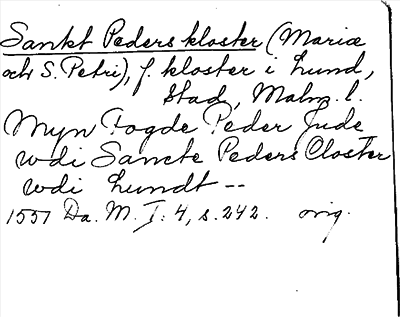 Sankt Peders kloster (Mariæ
och S. Petri), f. kloster i Lund,
stad, Malm. l.
Myn Fogde Peder Jude
wdi Sancte Peders Closter
wdi Lundt --
1551 Da. M. I: 4, s. 242. orig.